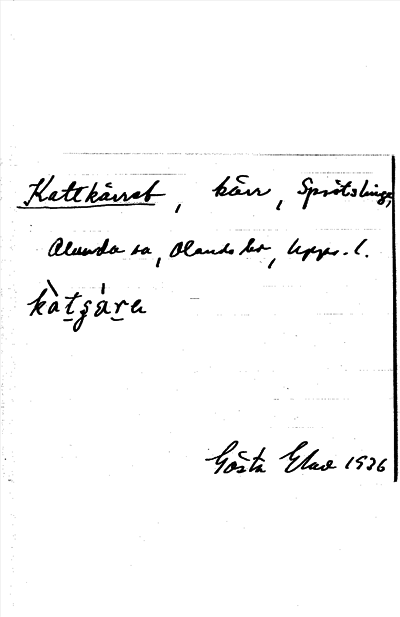 Kattkärret, kärr, Sprötslinge,
Alunda sn, Olands hd, Upps. l.
kàtçä́ru
Gösta Elae 1936